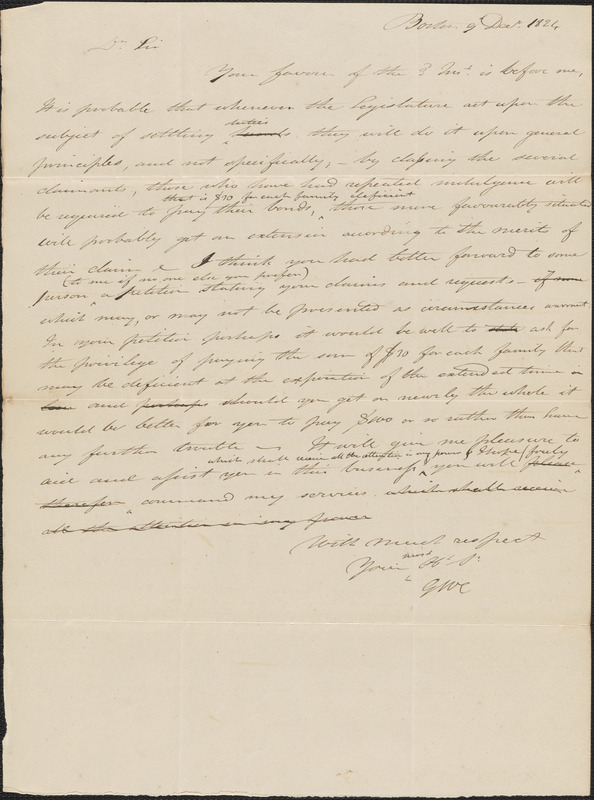 Boston 9th Decr. 1824
Dr Sir
Your favour of the 3 Inst. is before me,
It is probable that whenever the legislature act upon the
duties
subject of settling they will do it upon general
principles, and not specifically, – by classing the several
claimants, those who have had repeated indulgence will
that is $30 for each family deficient
be required to pay their bonds, those more favourably situated
will probably get an extension according to the merits of
their claim & I think you had better forward to some
(to me if no one else you prefer)
person a petition stating your claims and requests – if none
which may, or may not be presented as circumstances warrant
In your petition perhaps it would be well to state ask for
the privilege of paying the sum of $30 for each family that
may be deficient at the expiration of the extended time
and perhaps should you get on nearly the whole it
would be better for you to pay $100 or so rather than have
any further trouble – It will give me pleasure to
which shall receive all the attention in my power & I hope freely
aid and assist you in this business you will please
therefor command my services. which shall receive
all the attention in my power
With much respect
most
Your Ob. St.
GWC